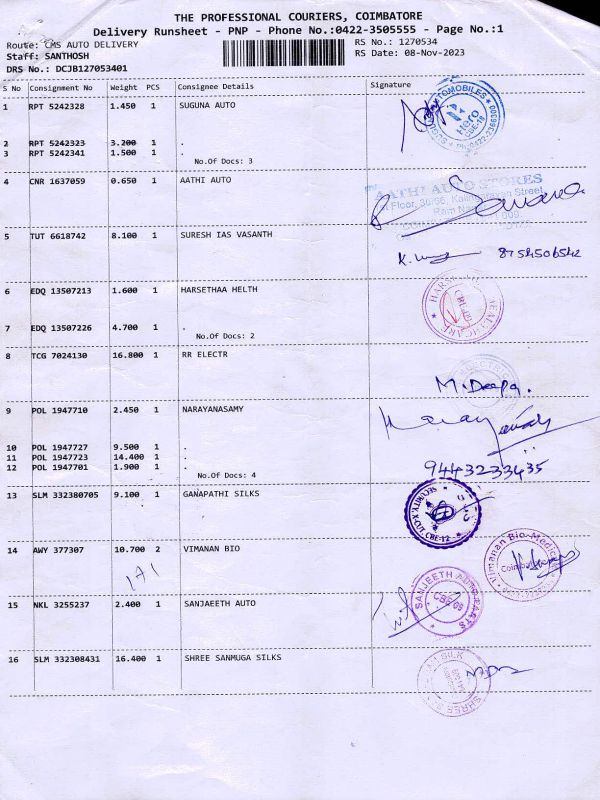 THE PROFESSIONAL COURIERS, COIMBATORE
Delivery Runsheet - PNP - Phone No.:0422-3505555 - Page No.:1
Route: CMS AUTO DELIVERY RS No.: 1270534
Staff: SANTHOSH RS Date: 08-Nov-2023
DRS No.: DCJB127053401
S No Consignment No Weight PCS Consignee Details Signature
1 RPT 5242328 1.450 1 SUGUNA AUTO
2 RPT 5242323 3.200 1 .
3 RPT 5242341 1.500 1 .
No.Of Docs: 3
4 CNR 1637059 0.650 1 AATHI AUTO
AATHI AUTO STORES
5 TUT 6618742 8.100 1 SURESH IAS VASANTH
8754506542
6 EDQ 13507213 1.600 1 HARSETHAA HELTH
7 EDQ 13507226 4.700 1 .
No.Of Docs: 2
8 TCG 7024130 16.800 1 RR ELECTR
M. Deepa.
9 POL 1947710 2.450 1 NARAYANASAMY
10 POL 1947727 9.500 1 .
11 POL 1947723 14.400 1 .
12 POL 1947701 1.900 1 .
No.Of Docs: 4
9443233435
13 SLM 332380705 9.100 1 GANAPATHI SILKS
14 AWY 377307 10.700 2 VIMANAN BIO
Vimanan Bio-Medic
15 NKL 3255237 2.400 1 SANJAEETH AUTO
SANJEETH AUTO PARTS
CBE-09
16 SLM 332308431 16.400 1 SHREE SANMUGA SILKS